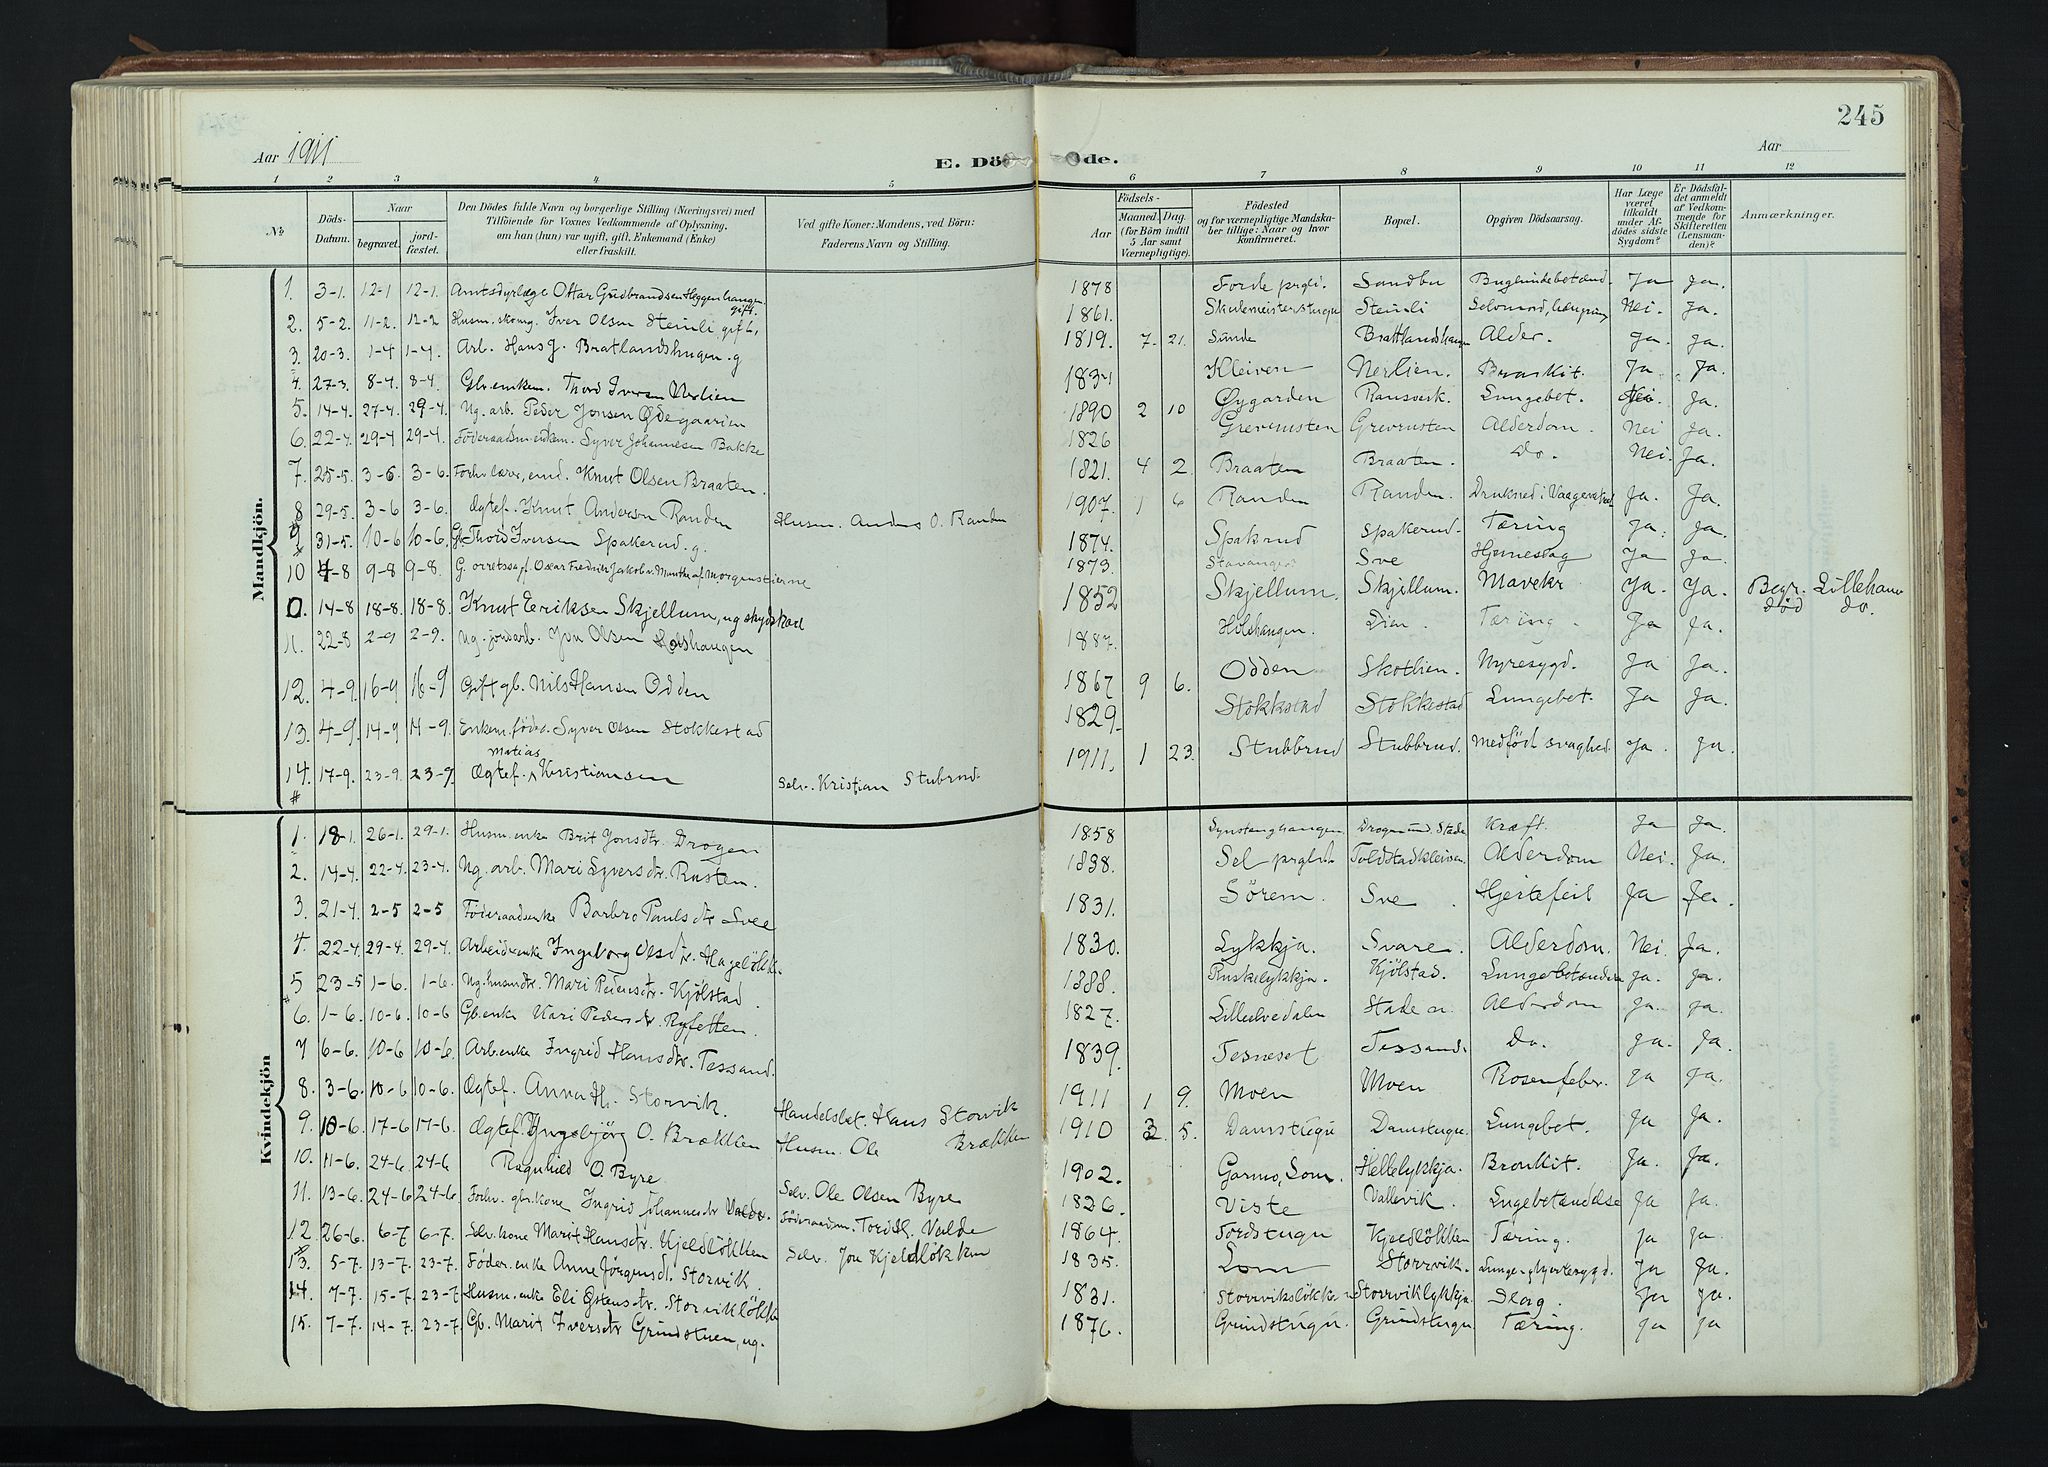 245
Aar 1911
E. Dö de.
Aar
1 2 3 4 5 6 7 8 9 10 11 12
No
Döds-Datum.
Naar
begravet.
jord-fæstet.
Den Dödes fulde Navn og borgerlige Stilling (Næringsvei) med
Tilföiende for Voxnes Vedkommende af Oplysning,
om han (hun) var ugift, gift, Enkemand (Enke)
eller fraskilt.
Ved gifte Koner: Mandens, ved Börn:
Faderens Navn og Stilling.
Födsels-
Aar
Maaned. Dag.
(for Börn indtil
5 Aar samt
Værnepligtige).
Födested
og for værnepligtige Mandska-
ber tillige: Naar og hvor
konfirmeret.
Bopæl.
Opgiven Dödsaarsag.
Har Læge
været
tilkaldt
under Af-
dødes sidste
Sygdom?
Er Dödsfal-
det anmeldt
af Vedkom-
mende for
Skifteretten
(Lensman-
den)?
Anmærkninger.
Mandkjön.
1. 3-1. 12-1 12-1. Amtsdyrlæge Ottar Gudbrandsen Heggenhaugen gift. 1878 Forde prgli. Sandbu Ja Ja.
2. 5-2. 11-2. 12-2 Husm. Iver Olsen Steinli gift, 1861. Steinli Selvmord, Nei. Ja.
3. 20-3. 1-4 1-4. Arb. Hans J. Bratlandshugen. g 1819. 7. 21. Sunde Alder. Ja. Ja.
4. 27-3. 8-4. 8-4. Gb. enkem. Thord Iversen Nerlien 1834 Kleiven Nerlien. Ja. Ja.
5. 14-4. 27-4. 29-4. Ug. arb. Peder Jonsen Ødegaarden 1890 2 10 Øygarden Ransverk. Lungebet. Ja.
6. 22-4. 29-4 29-4. Föderaadsm. enkem. Syver Johannesen Bakke 1826 Grevrusten Grevrusten Alderdom. Nei Ja.
7. 25-5. 3-6 3-6. Forhv. lærer, emd. Knut Olsen Braaten. 1821. 4 2. Braaten Braaten. Do. Nei. Ja.
8 29-5. 3-6 3-6. Ægtef. Knut Andersen Randen Husm. Anders O. Randen 1907. 1 6 Randen Randen. Druknede i Ja. Ja.
9 31-5. 10-6 10-6. G. Thord Iversen Spakerud. g. 1874. Spakrud Spakerud. Tæring Ja. Ja.
10 4-8 9-8 9-8. G. Oscar Fredrik Jakob v. Munthe af Morgenstierne 1873. Stavanger Sve Hjerneslag Ja Ja.
0. 14-8 18-8. 18-8. Knut Eriksen Skjellum, ug 1852 Skjellum. Skjellum. Ja. Ja. Begr. Lilleham
död do.
11. 22-8 2-9 2-9. Ug. jordarb. Jon Olsen Holshaugen 1887. Holshaugen. Tæring. Ja Ja.
12. 4-9. 16-9 16-9 Gift gb. Nils Hansen Odden 1867 9 6. Odden Skotlien. Nyresygd. Ja Ja.
13. 4-9. 14-9 14-9. Enkem. föder. Syver Olsen Stokkestad 1829. Stokkstad Stokkestad Lungebet. Ja Ja.
14. 17-9. 23-9. 23-9. Ægtef. Matias Kristiansen Selv. Kristian Stubrud. 1911. 1 23. Stubbrud Stubbrud. Medfödt svaghed. Ja. Ja.
Kvindekjön
1. 18-1. 26-1. 29-1. Husm. enke Brit Jonsdtr. Drogen 1858 Synstenghaugen Drogen und. Stade Kræft. Ja Ja.
2. 14-4. 22-4. 23-4. Ug. arb. Mari Syversdtr. Rusten. 1838. Sel prgld. Toldstadkleiven Alderdom Nei. Ja.
3. 21-4. 2-5 2-5 Föderaadsenke Barbro Paulsdtr Sve 1831. Sörem. Sve. Hjertefeil Ja Ja.
4. 22-4. 29-4. 29-4. Arbeidrenke Ingeborg Olsdtr. Hagelökk. 1830. Lykkja. Svare. Alderdom. Nei Ja.
5 23-5 1-6. 1-6. Ug. husmdtr. Mari Pedersdtr. Kjölstad. 1888. Kjölstad. Lungebetændelse Ja. Ja.
6. 1-6. 10-6. 10-6 Gb. enke Kari Pedersdtr. Ryfetten. 1827. Stade Alderdom Ja. Ja.
7 6-6. 10-6 10-6. Arb. enke Ingrid Hansdtr. Tessand. 1839. Tesneset Tessand. Do. Ja. Ja.
8. 3-6. 10-6 10-6. Ægtef. Anna H. Storvik. Handelsbet. Hans Storvik 1911 1 9. Moen Moen Rosenfeber. Ja Ja.
9. 10-6. 17-6 17-6. Ægtef. Ingebjörg O. Brækken Husm. Ole Brækken 1910 5. Damstugu Damstugu. Lungebet. Ja Ja.
10. 11-6. 24-6. 24-6 Ragnhild O. Byre Selv. Ole Olsen Byre 1902. Garmo, Lom. Hellelykkja. Bronkit. Ja. Ja.
11. 13-6. 24-6 24-6. Forhv. gbr. kone Ingrid Johannesdtr Valde. Föderaadm. Tord H. Valde 1826. Viste Vallevik. Lngebetændelse Ja Ja.
12. 26-6. 6-7 6-7. Selv. kone Marit Hansdtr. Kjeldlökken Selv. Jon Kjeldlökken 1864. Tordstugu Kjeldlökken Tæring. Ja Ja.
13. 5-7. 13-7. 23-7. Föder. enke Anne Jörgensd. Storvik. 1835. Lom Storrvik. Lunge- g hjertesygd. Ja Ja.
14. 7-7. 15-7 23-7 Husm. enke Eli Östensdtr. Storviklökk 1831. Storrvikslökke Storrviklykkja. Slag. Ja Ja.
15. 7-7. 14-7. 23-7 Gb. Marit Iversdtr Grindstuen, ug. 1876. Grindstugu. Grindstugu Tæring. Ja Ja